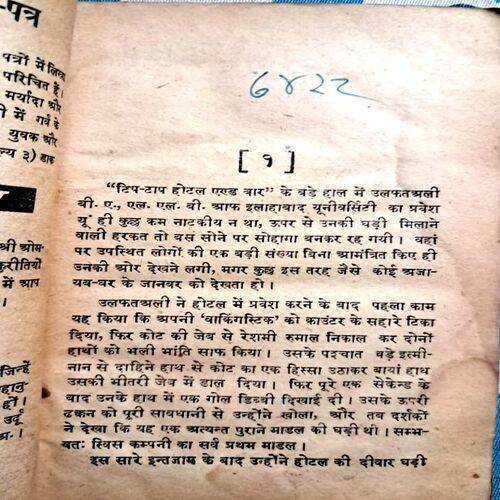 -पत्र
पत्रों में लिखा
परिचित हैं।
मर्यादा और
में गर्व के
युवक और
मूल्य ३) डाक
श्री ओम-
कुरीतियों
में आप
जिन्हें
हों।
उर्दू
६४२२
[ १ ]
“टिप-टाप होटल एण्ड बार” के बड़े हाल में उलफतअली
बी. ए., एल. एल. बी. आफ इलाहाबाद यूनीवर्सिटी का प्रवेश
यूं ही कुछ कम नाटकीय न था, ऊपर से उनकी घड़ी मिलाने
वाली हरकत तो बस सोने पर सोहागा बनकर रह गयी। वहां
पर उपस्थित लोगों की एक बड़ी संख्या बिना आमंत्रित किए ही
उनकी ओर देखने लगी, मगर कुछ इस तरह जैसे कोई अजा-
यब-घर के जानवर को देखता हो।
उलफतअली ने होटल में प्रवेश करने के बाद पहला काम
यह किया कि अपनी ‘वाकिंगस्टिक’ को काउंटर के सहारे टिका
दिया, फिर कोट की जेब से रेशमी रुमाल निकाल कर दोनों
हाथों को भली भांति साफ किया। उसके पश्चात बड़े इत्मी-
नान से दाहिने हाथ से कोट का एक हिस्सा उठाकर बायां हाथ
उसकी भीतरी जेब में डाल दिया। फिर पूरे एक सेकेन्ड के
बाद उनके हाथ में एक गोल डिब्बी दिखाई दी। उसके ऊपरी
ढक्कन को पूरी सावधानी से उन्होंने खोला, और तब दर्शकों
ने देखा कि यह एक अत्यन्त पुराने माडल की घड़ी थी। सम्भ-
वतः स्विस कम्पनी का सर्व प्रथम माडल।
इस सारे इन्तजाम के बाद उन्होंने होटल की दीवार घड़ी